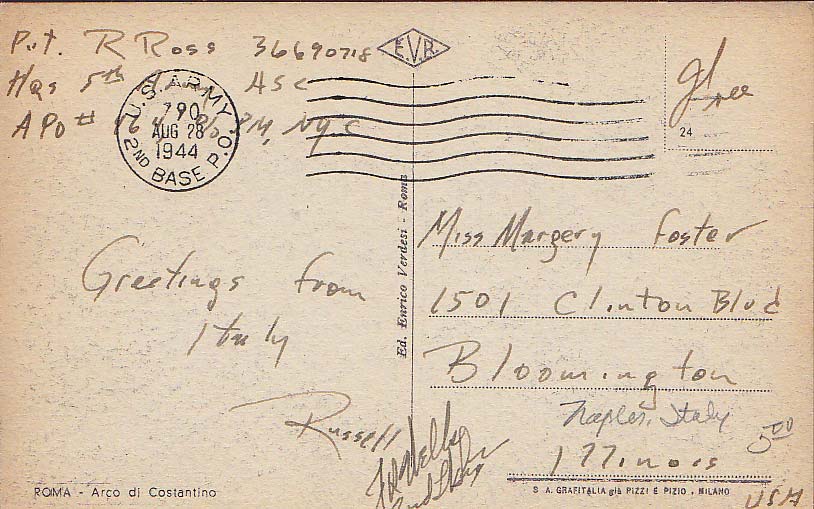 Pvt. R Ross 36690718
Hqs 5th Army ASC
APO # 464 % PM, NYC
U.S. ARMY
790
AUG 28
1944
2ND BASE P.O.
E.V.R.
Free
24
Greetings from
Italy
Russell
Ed. Enrico Verdesi - Roma
Miss Margery Foster
1501 Clinton Blvd
Bloomington
Naples, Italy
5.00
Illinois
USA
ROMA - Arco di Costantino
S. A. GRAFITALIA già PIZZI E PIZIO . MILANO